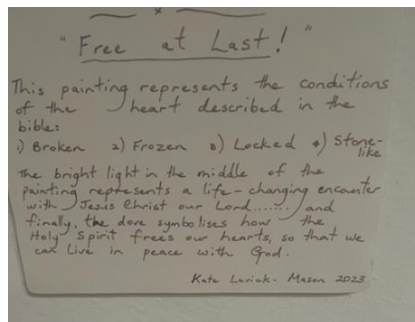 "Free at Last!"
This painting represents the conditions
of the heart described in the
bible:
1) Broken 2) Frozen 3) Locked 4) Stone-
like
The bright light in the middle of the
painting represents a life-changing encounter
with Jesus Christ our Lord....... and
finally, the dove symbolises how the
Holy Spirit frees our hearts, so that we
can live in peace with God.
Kate - Mason 2023